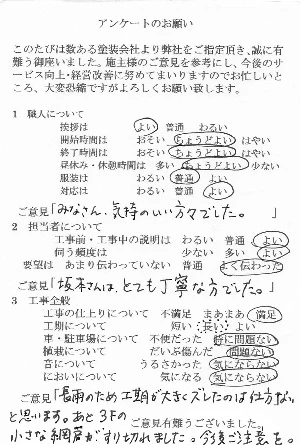 アンケートのお願い
このたびは数ある塗装会社より弊社をご指定頂き、誠に有
難う御座いました。施主様のご意見を参考にし、今後のサ
ービス向上・経営改善に努めてまいりますのでお忙しいと
ころ、大変恐縮ですがよろしくお願い致します。
1 職人について
挨拶は よい 普通 わるい
開始時間は おそい ちょうどよい はやい
終了時間は おそい ちょうどよい はやい
昼休み・休憩時間は 多い ちょうどよい 少ない
服装は わるい 普通 よい
対応は わるい 普通 よい
ご意見「みなさん、気持のいい方々でした。」
2 担当者について
工事前・工事中の説明は わるい 普通 よい
伺う頻度は 少ない 多い よい
要望は あまり伝わっていない 普通 よく伝わった
ご意見「坂本さんは、とても丁寧な方でした。」
3 工事全般
工事の仕上りについて 不満足 まあまあ 満足
工期について 短い 長い よい
車・駐車場について 不便だった 特に問題ない
植栽について だいぶ傷んだ 問題ない
音について うるさかった 気にならない
においについて 気になる 気にならない
ご意見「長雨のため工期が大きくズレたのは仕方ない
と思います。あと3Fの
ご意見有難うございました。
小さな網戸がすり切れました。今後ご注意を。